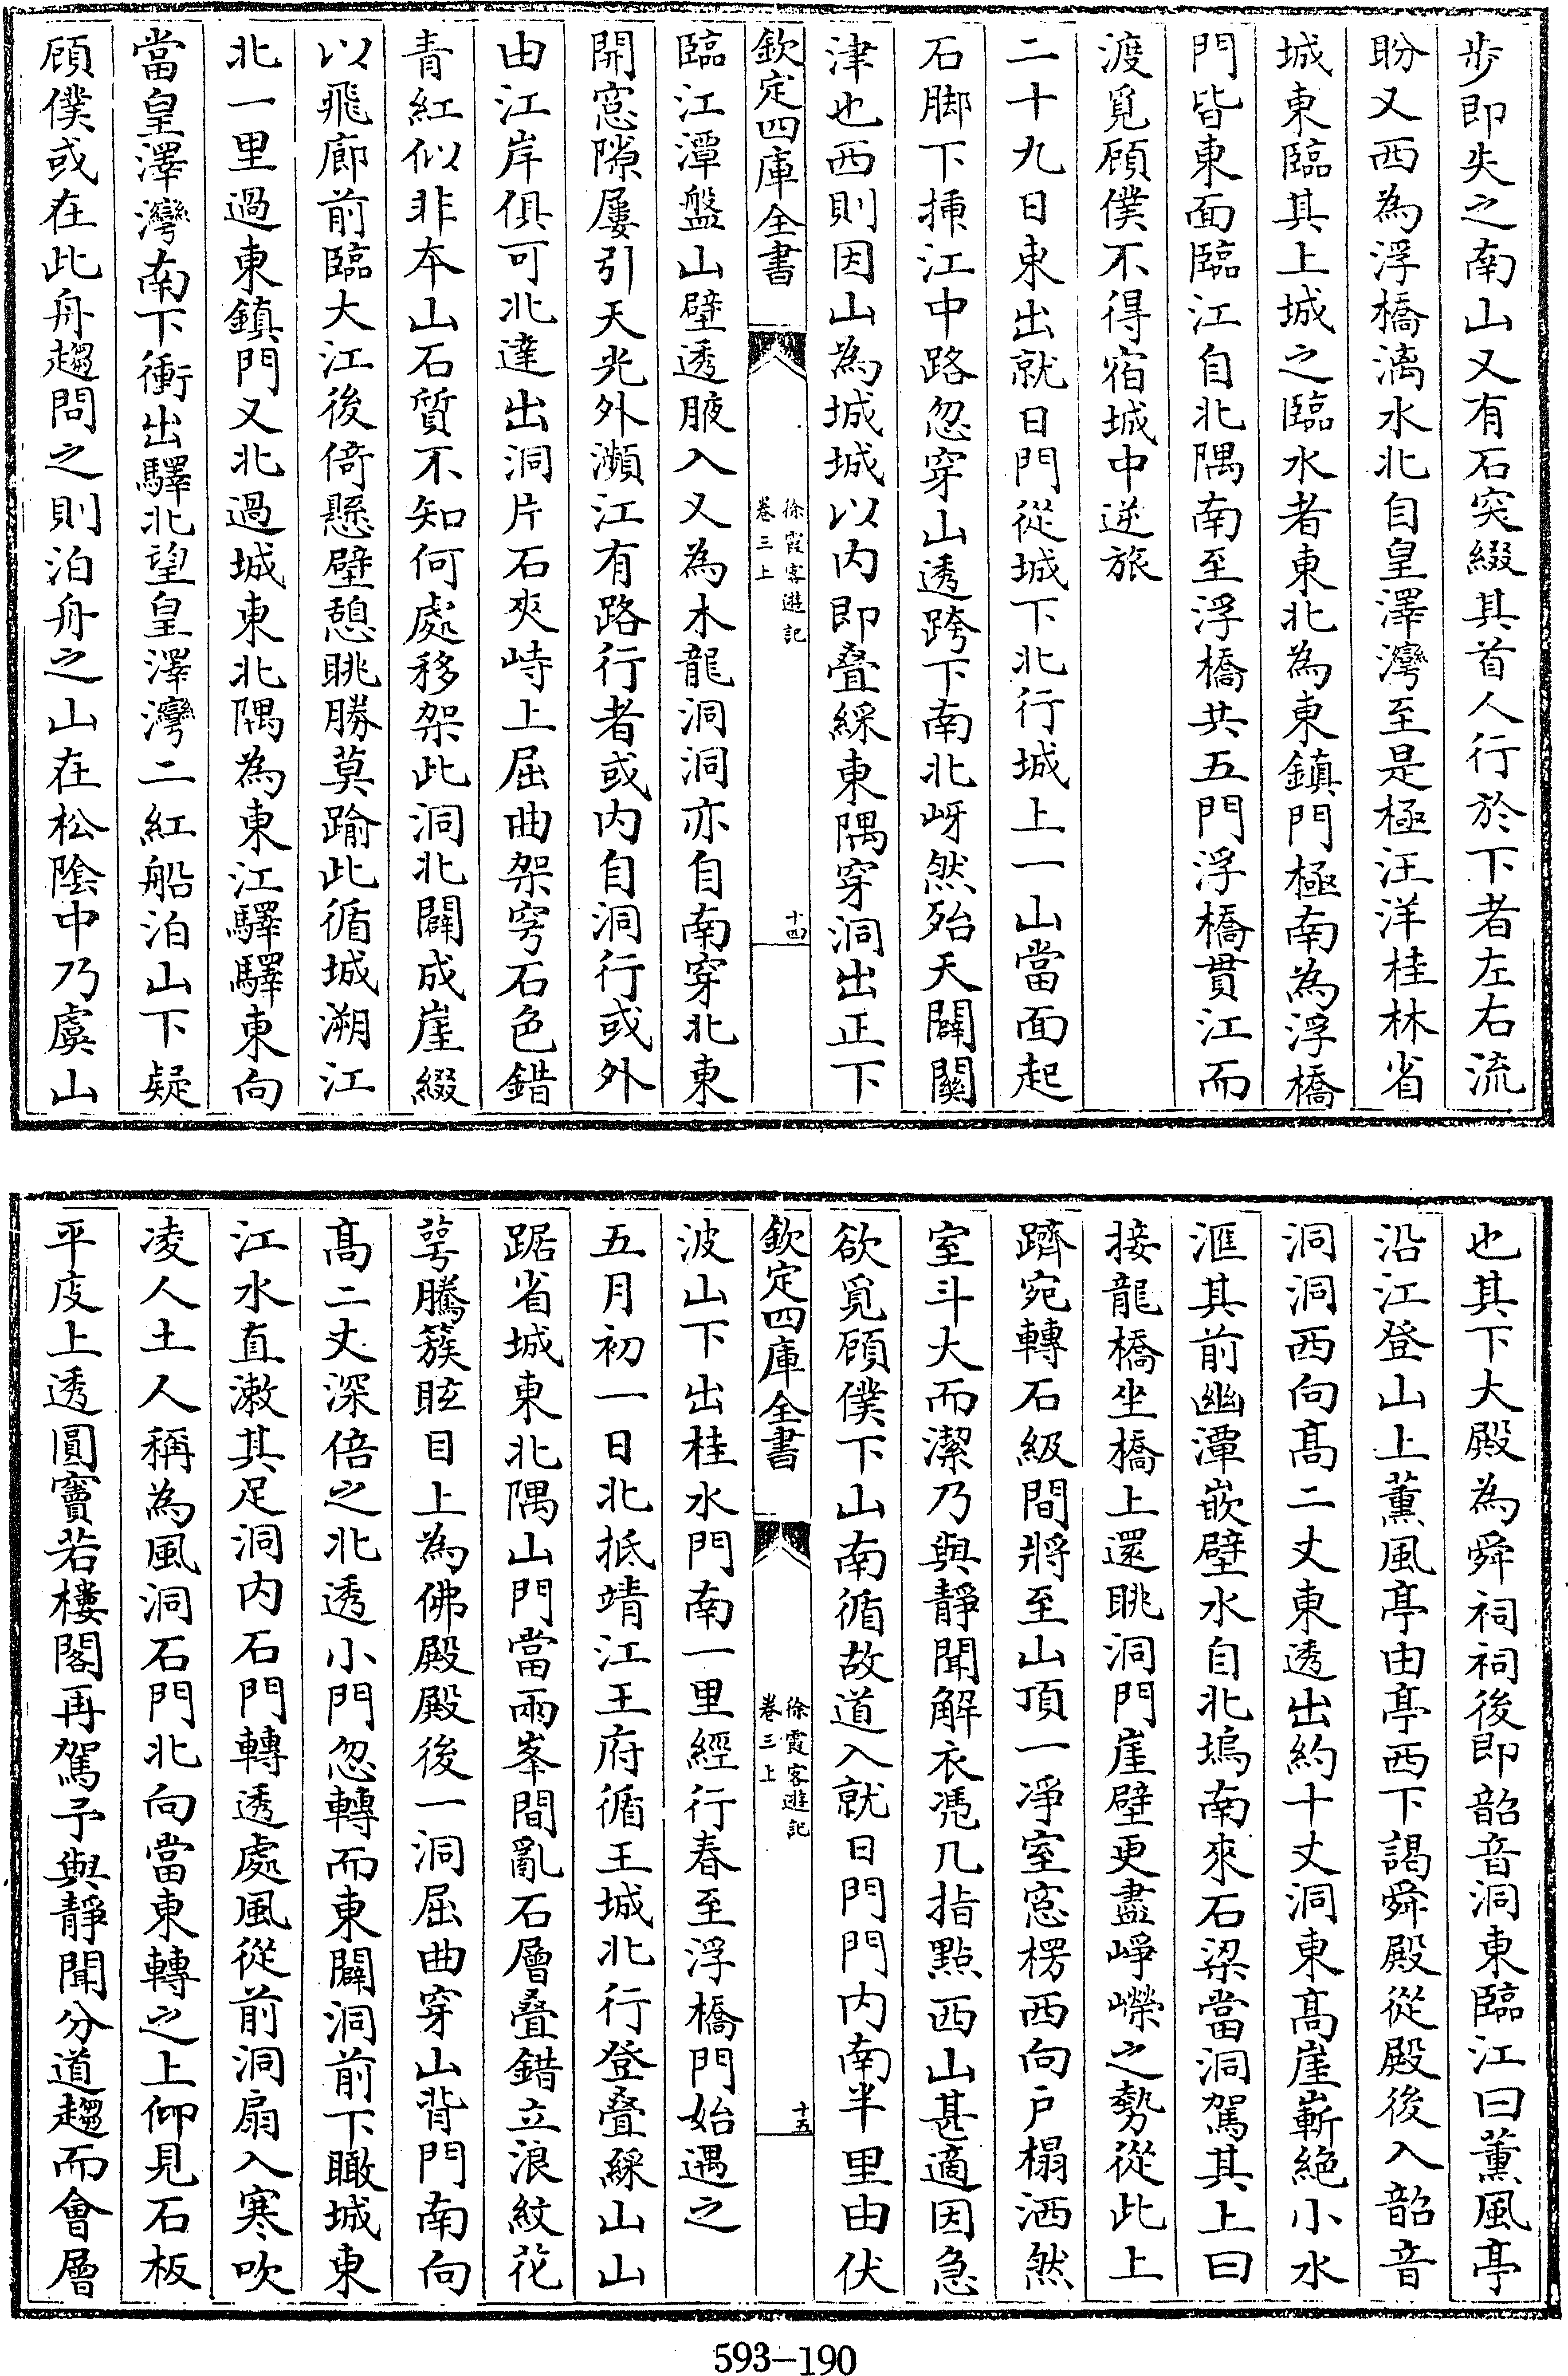 步即失之南山又有石突綴其首人行於下者左右流
盼又西為浮橋漓水北自皇澤灣至是極汪洋桂林省
城東臨其上城之臨水者東北為東鎮門極南為浮橋
門皆東面臨江自北隅南至浮橋共五門浮橋貫江而
渡覓顧僕不得宿城中逆旅
二十九日東出就日門從城下北行城上一山當面起
石脚下挿江中路忽穿山透跨下南北岈然殆天闢關
津也西則因山為城城以内即叠綵東隅穿洞出正下
欽定四庫全書
徐霞客遊記
卷三上
十四
臨江潭盤山壁透腋入又為木龍洞洞亦自南穿北東
開窓隙屢引天光外瀕江有路行者或内自洞行或外
由江岸俱可北達出洞片石夾峙上屈曲架穹石色錯
青紅似非本山石質不知何處移架此洞北闢成崖綴
以飛廊前臨大江後倚懸壁憩眺勝莫踰此循城溯江
北一里過東鎮門又北過城東北隅為東江驛驛東向
當皇澤灣南下衝出驛北望皇澤灣二紅船泊山下疑
顧僕或在此舟趨問之則泊舟之山在松陰中乃虞山
也其下大殿為舜祠祠後即韶音洞東臨江曰薰風亭
沿江登山上薰風亭由亭西下謁舜殿從殿後入韶音
洞洞西向髙二丈東透出約十丈洞東髙崖嶄絶小水
滙其前幽潭嵌壁水自北塢南來石梁當洞駕其上曰
接龍橋坐橋上還眺洞門崖壁更盡崢嶸之勢從此上
躋宛轉石級間將至山頂一凈室窓楞西向户榻洒然
室斗大而潔乃與靜聞解衣凴几指點西山甚適因急
欲覓顧僕下山南循故道入就日門門内南半里由伏
欽定四庫全書
徐霞客遊記
卷三上
十五
波山下出桂水門南一里經行春至浮橋門始遇之
五月初一日北抵靖江王府循王城北行登叠綵山山
踞省城東北隅山門當兩峯間亂石層叠錯立浪紋花
萼騰簇眩目上為佛殿殿後一洞屈曲穿山背門南向
髙二丈深倍之北透小門忽轉而東闢洞前下瞰城東
江水直漱其足洞内石門轉透處風從前洞扇入寒吹
凌人土人稱為風洞石門北向當東轉之上仰見石板
平庋上透圓竇若樓閣再駕予與靜聞分道趨而會層
593-190